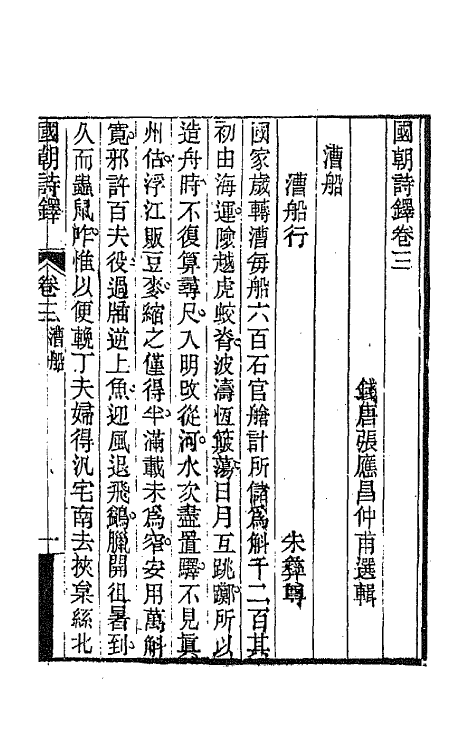 國朝詩鐸卷三
錢唐張應昌仲甫選輯
漕船
漕船行
朱彝尊
國家歲轉漕每船六百石官艙計所儲爲斛千二百其
初由海運隃越虎蛟脊波濤恆簸蕩日月互跳躑所以
造舟時不復算尋尺入明改從河水次盡置驛不見眞
州估浮江販豆麥縮之僅得半滿載未爲窄安用萬斛
寬邪許百夫役過牐逆上魚迎風退飛鷁臘開徂暑到
久而蟲鼠咋惟以便輓丁夫婦得汎宅南去挾枲絲北
國朝詩鐸
卷三 漕船
一